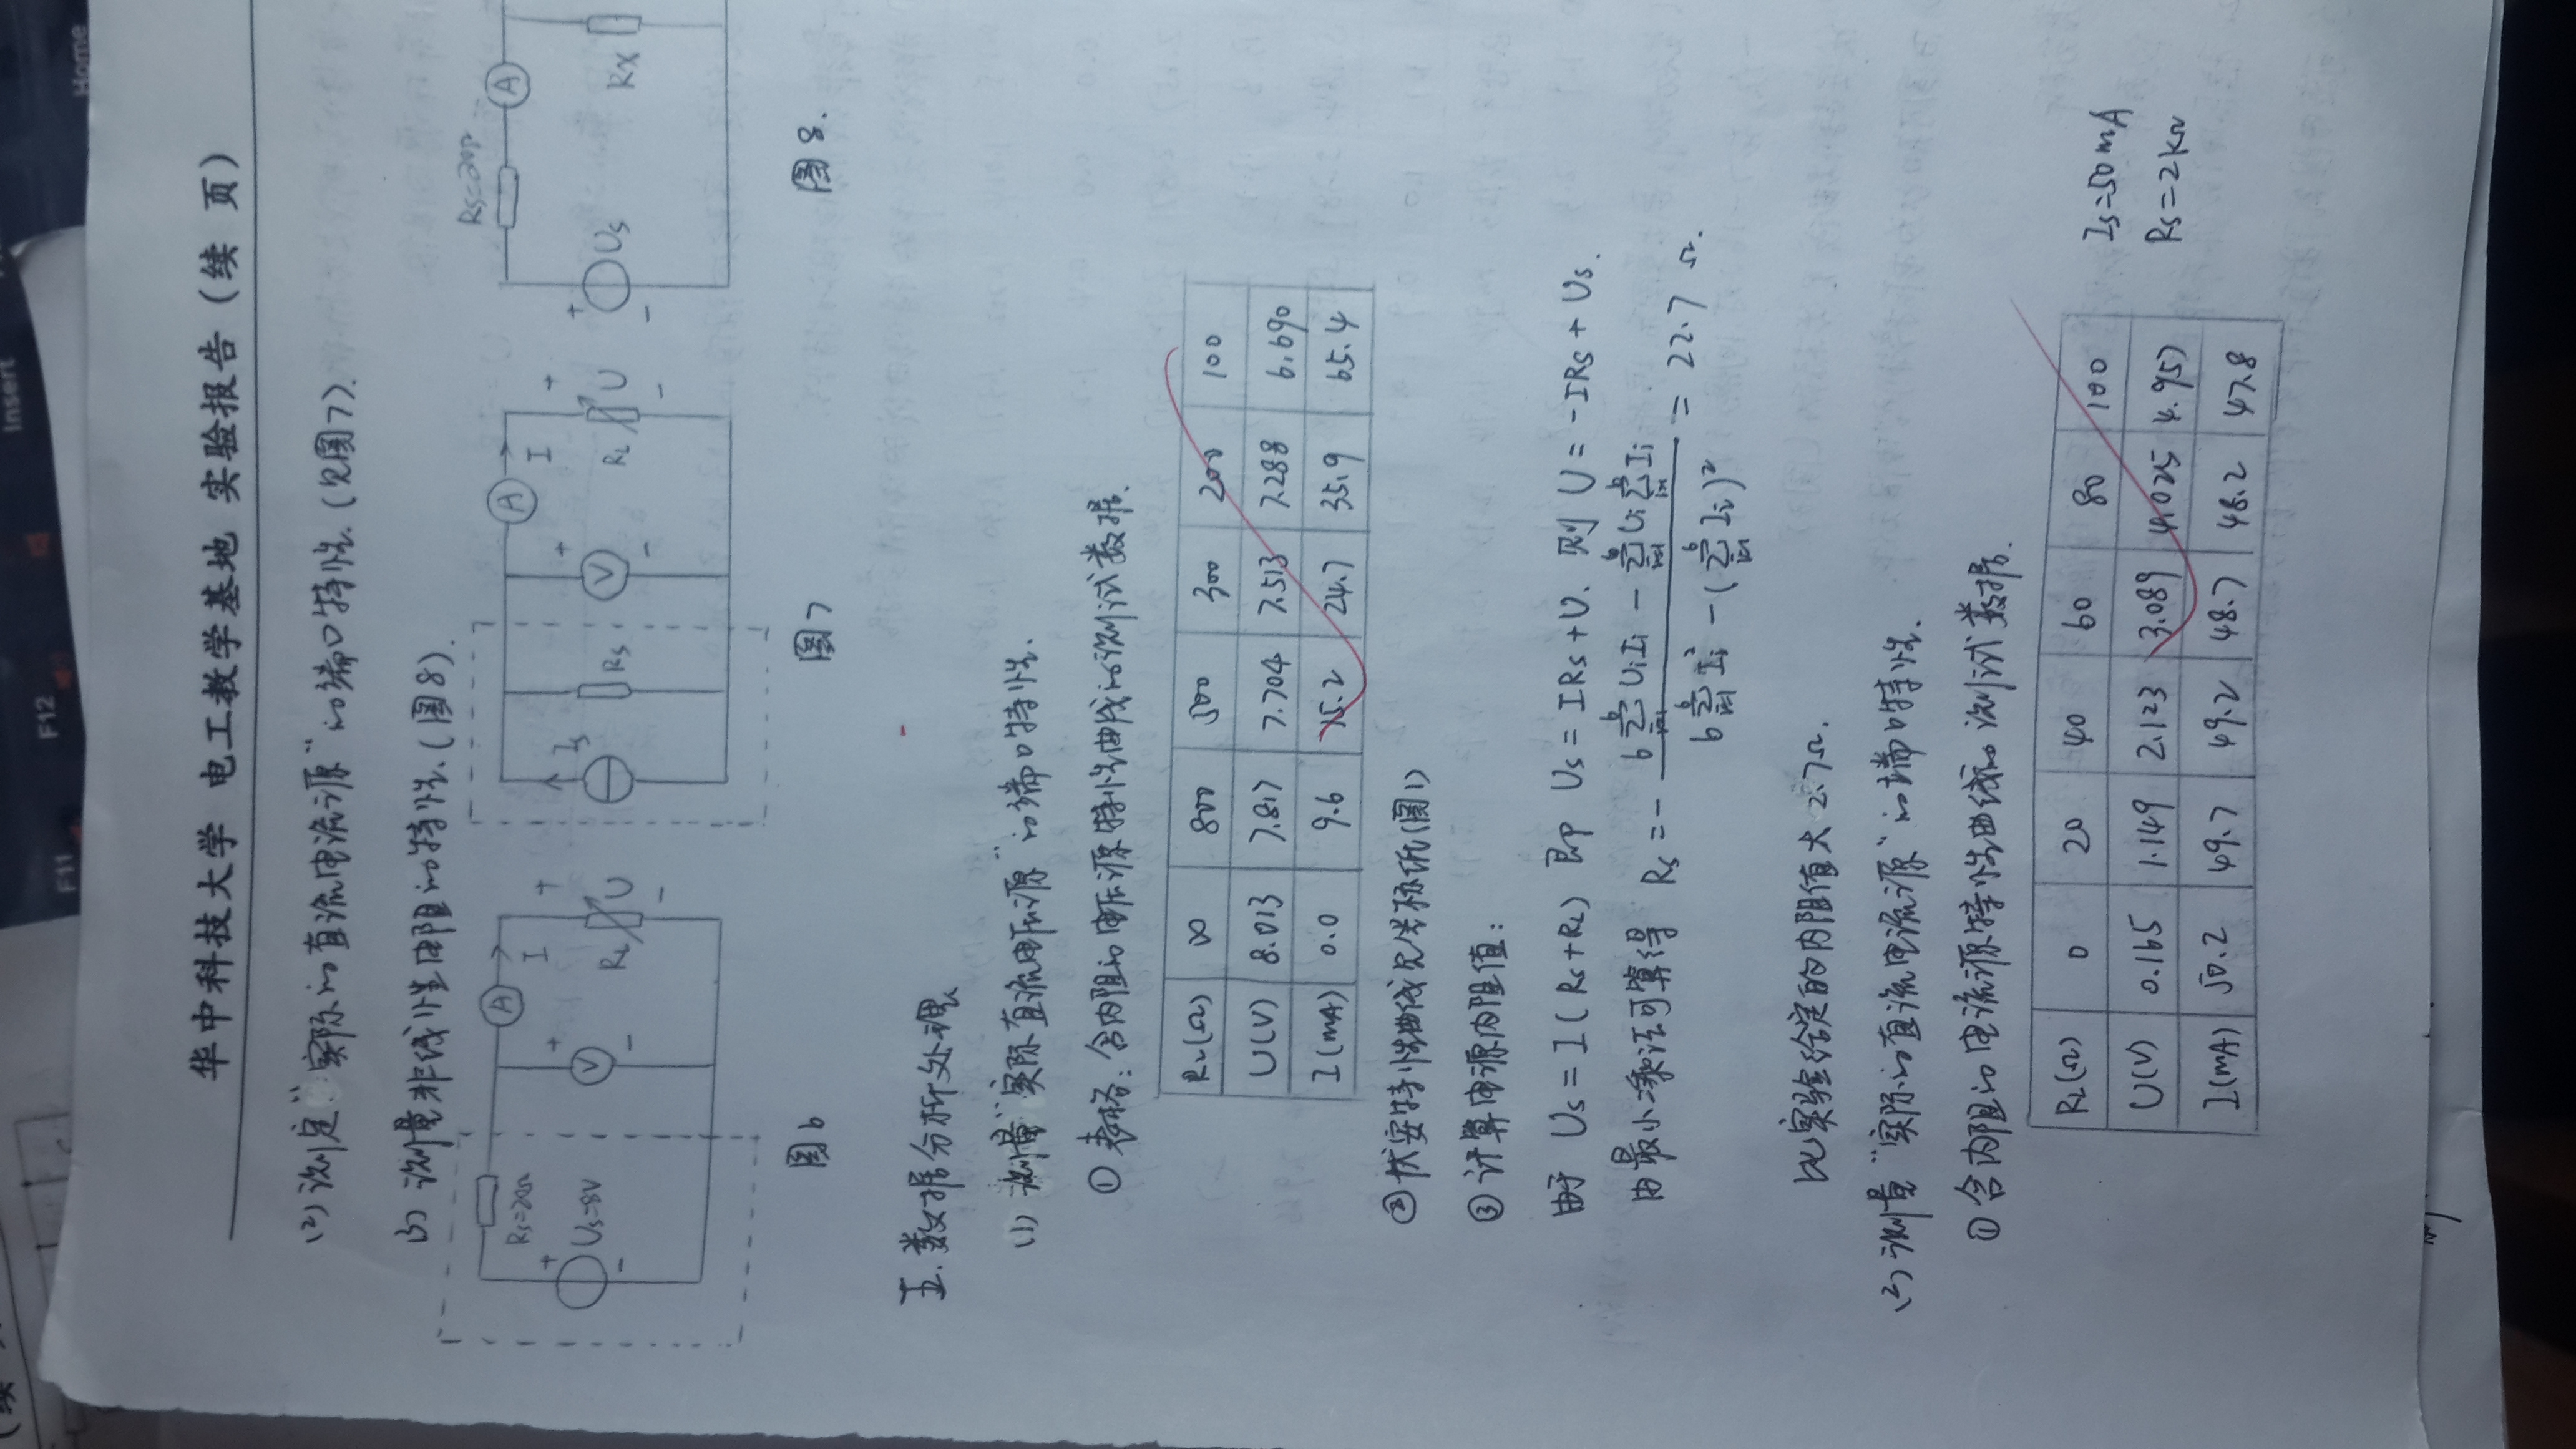 Insert
F12
F11
Home
华中科技大学 电工教学基地 实验报告（续 页）
(2) 测定“实际的直流电流源”的端口特性.(见图7).
(3) 测量非线性电阻的特性.(图8).
Rs=20Ω A I + Us=8V - V + - RL U + -
Is Rs V + - A I RL U + -
Rs=20Ω A + Us - Rx
图6 图7 图8.
五.数据分析处理
(1) 测量“实际直流电压源”的端口特性.
① 表格:含内阻的电压源特性曲线的测试数据.
RL(Ω) ∞ 800 500 300 200 100
U(V) 8.013 7.817 7.704 7.513 7.288 6.690
I(mA) 0.0 9.6 15.2 24.7 35.9 65.4
② 伏安特性曲线见坐标纸(图1)
③ 计算电源内阻值:
由于 Us = I(Rs+RL) 即 Us = IRs+U. 则 U = -IRs + Us.
由最小二乘法可算得 Rs = - (6∑UiIi - ∑Ui∑Ii) / (6∑Ii² - (∑Ii)²) = 22.7 Ω.
比实验给定的内阻值大2.7Ω.
(2) 测量“实际的直流电流源”的端口特性.
① 含内阻的电流源特性曲线的测试数据.
RL(Ω) 0 20 40 60 80 100
U(V) 0.165 1.149 2.123 3.089 4.025 4.957
I(mA) 50.2 49.7 49.2 48.7 48.2 47.8
Is=50mA
Rs=2kΩ